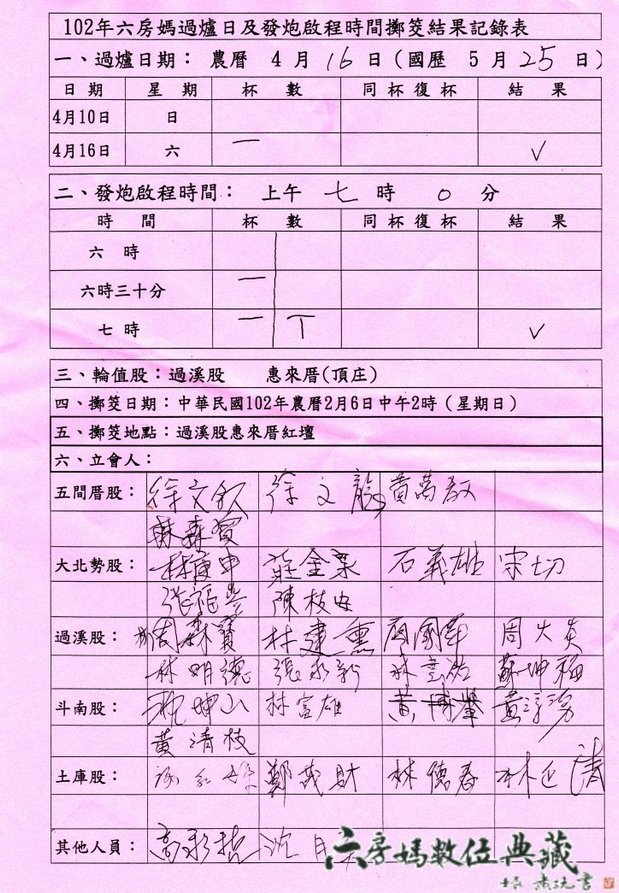 102年六房媽過爐日及發炮啟程時間擲筊結果記錄表
一、過爐日期：農曆 4 月 16 日(國歷 5 月 25 日)
日期 星期 杯數 同杯復杯 結果
4月10日 日
4月16日 六 一 ✓
二、發炮啟程時間： 上午 七 時 0 分
時間 杯數 同杯復杯 結果
六 時
六時三十分 一
七 時 一 丅 ✓
三、輪值股：過溪股 惠來厝(頂庄)
四、擲筊日期：中華民國102年農曆2月6日中午2時(星期日)
五、擲筊地點：過溪股惠來厝紅壇
六、立會人：
五間厝股： 徐文 徐文龍 黃萬
林森寶
大北勢股： 林庚申 莊金 石義雄 宋切
陳枝
過溪股： 周森寶 林建熏 周國 周火炎
林明德 張永新 林 蘇坤
斗南股： 沈坤山 林富雄 黃 黃
黃清枝
土庫股： 鄭茂財 林德春 林 清
其他人員： 高 沈
六房媽數位典藏